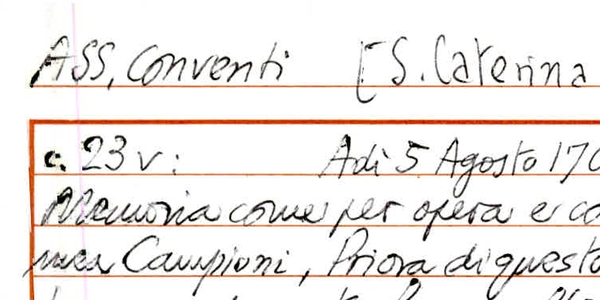 ASS, Conventi [S. Caterina
c. 23 v: Adì 5 Agosto 170
Memoria come per opera e co
mea Campioni, Priora di questo